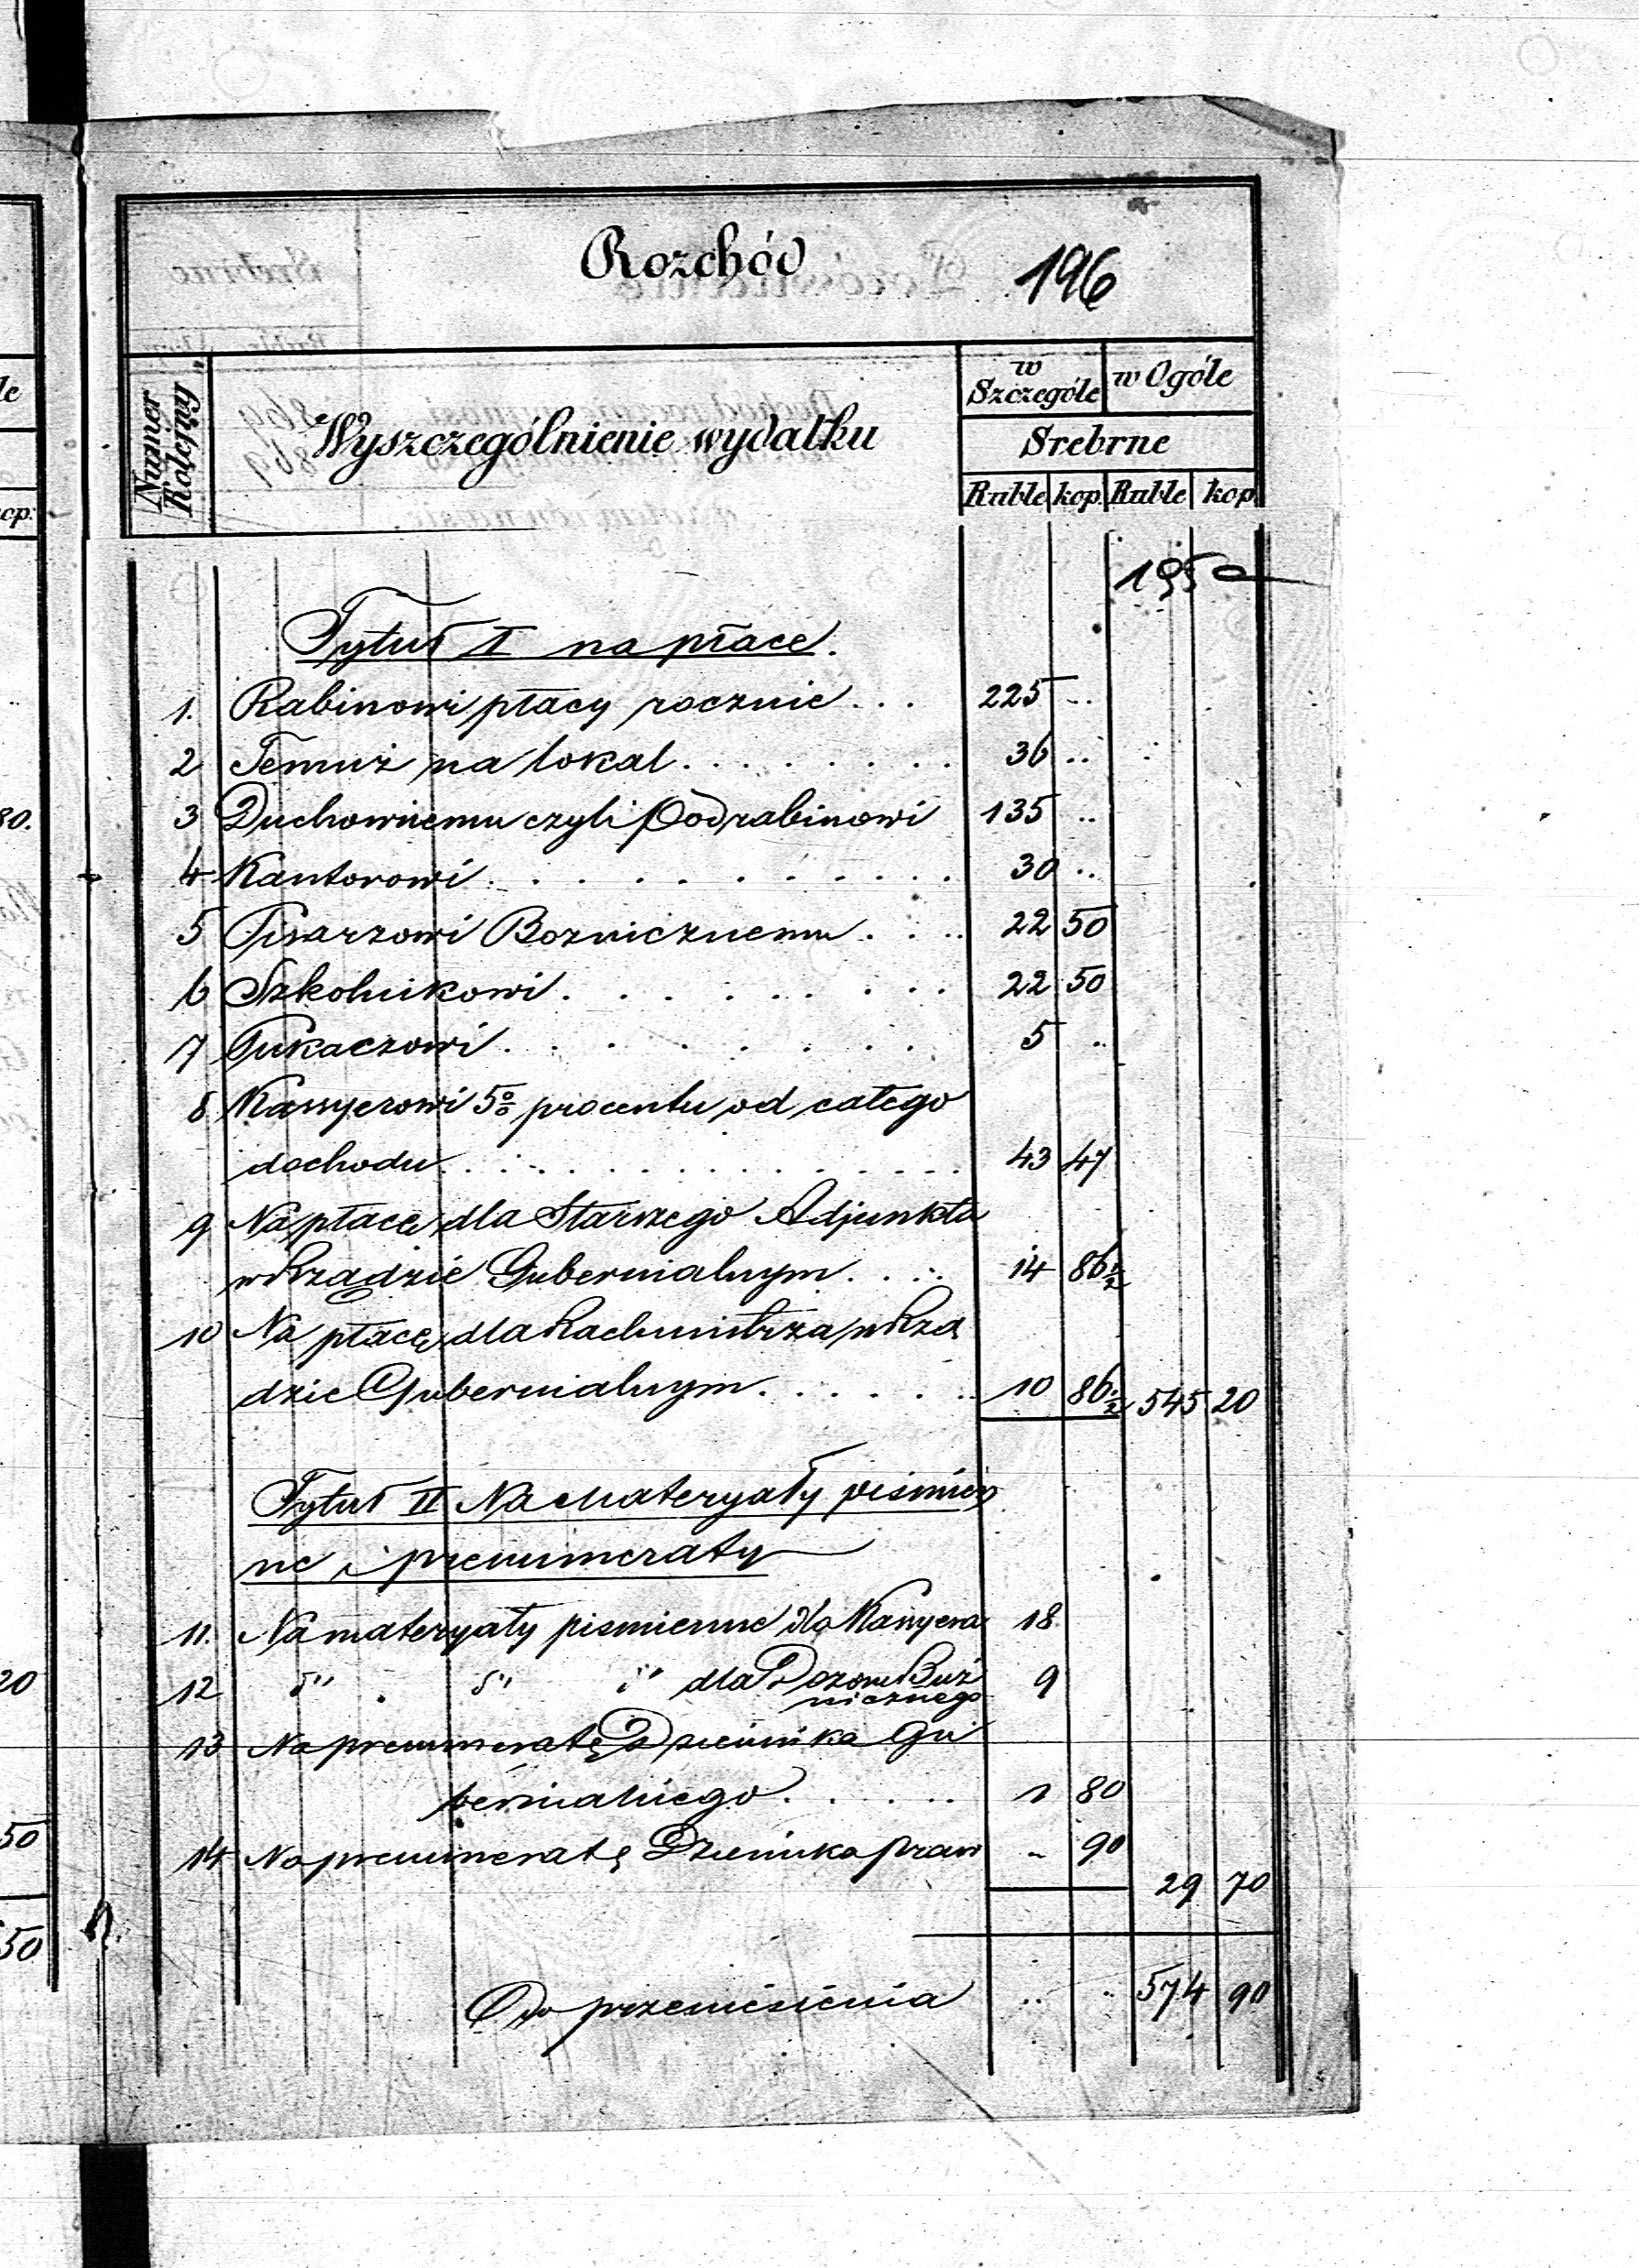 Rozchód 196
Numer Kolejny
Wyszczególnienie wydatku
w Szczególe
w Ogóle
Srebrne
Ruble kop. Ruble kop.
195
Tytuł I na płace.
1. Rabinowi płacy rocznie . . . 225 ..
2 Temuż na lokal . . . . . . . . 36 ..
3 Duchownemu czyli Podrabinowi 135 ..
4 Kantorowi . . . . . . . . . . 30 ..
5 Pisarzowi Boznicznemu . . . 22 50
6 Szkolnikowi . . . . . . . . . 22 50
7 Pukaczowi . . . . . . . . . 5 ..
8 Kassyerowi 5% procentu od całego
dochodu . . . . . . . . . . . 43 47
9 Na płacę dla Starszego Adjunkta
w Rządzie Gubernialnym . . . . 14 86 1/2
10 Na płacę dla Rachmistrza w Rzą
dzie Gubernialnym . . . . . . 10 86 1/2 545 20
Tytuł II Na Materyały piśmien
ne i prenumeraty
11. Na materyały piśmienne dla Kassyera 18
12 " " " dla Dozoru Buż
nicznego 9
13 Na prenumeratę Dziennika Gu
bernialnego . . . . . 1 80
14 Na prenumeratę Dziennika praw - 90
29 70
Do przeniesienia .. .. 574 90
le
kop.
80.
20
50
50